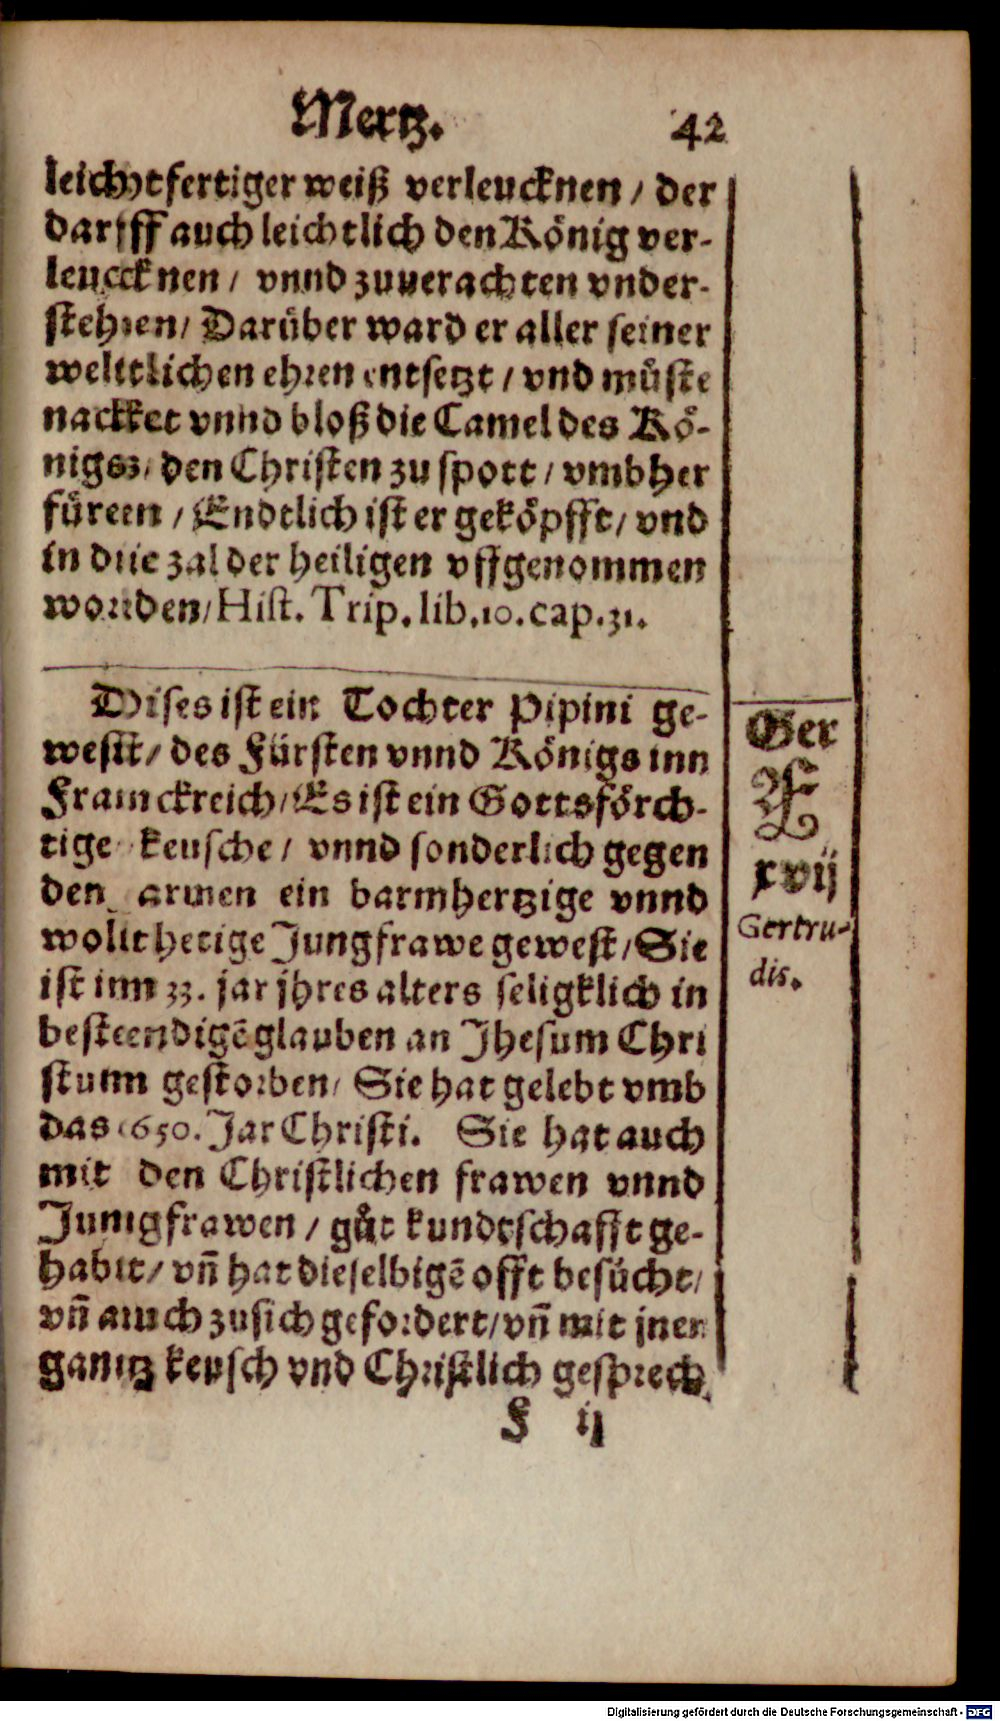 Mertz. 42
leichtfertiger weiß verleucknen / der
darff auch leichtlich den König ver-
leucknen / vnnd zuuerachten vnder-
stehen / Darüber ward er aller seiner
weltlichen ehren entsetzt / vnd müste
nacket vnnd bloß die Camel des Kö-
nigs / den Christen zu spott / vmbher
füren / Endtlich ist er geköpfft / vnd
in die zal der heiligen vffgenommen
worden / Hist. Trip. lib. 10. cap. 31.
Dises ist ein Tochter Pipini ge-
west / des Fürsten vnnd Königs inn
Franckreich / Es ist ein Gottsförch-
tige keusche / vnnd sonderlich gegen
den armen ein barmhertzige vnnd
wolthetige Jungfrawe gewest / Sie
ist inn 33. jar jhres alters seligklich in
bestendigē glauben an Jhesum Chri
stum gestorben / Sie hat gelebt vmb
das 650. Jar Christi. Sie hat auch
mit den Christlichen frawen vnnd
Jungfrawen / gůt kundtschafft ge-
habt / vñ hat dieselbigē offt besücht /
vñ auch zusich gefordert / vñ mit jnen
gantz keusch vnd Christlich gesprech
F ij
Ger
F
xvij
Gertru-
dis.
Digitalisierung gefördert durch die Deutsche Forschungsgemeinschaft - DFG